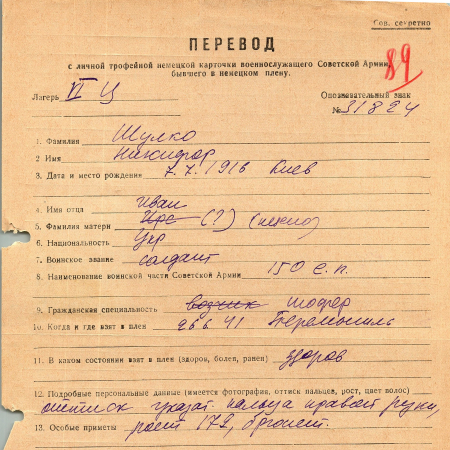 Сов. секретно
ПЕРЕВОД
с личной трофейной немецкой карточки военнослужащего Советской Армии,
бывшего в немецком плену.
89
Лагерь VI Ц
Опознавательный знак
№ 31824
1. Фамилия Шулко
2 Имя Никифор
3. Дата и место рождения 7.7.1916 Киев
4. Имя отца Иван
5. Фамилия матери (?) (неясно)
6. Национальность Укр
7. Воинское звание солдат
8. Наименование воинской части Советской Армии 150 с.п.
9. Гражданская специальность возчик шофер
10. Когда и где взят в плен 26 6 41
11. В каком состоянии взят в плен (здоров, болен, ранен) здоров
12. Подробные персональные данные (имеется фотография, оттиск пальцев, рост, цвет волос)
оттиск указат пальца правой руки,
13. Особые приметы рост 172, брюнет.